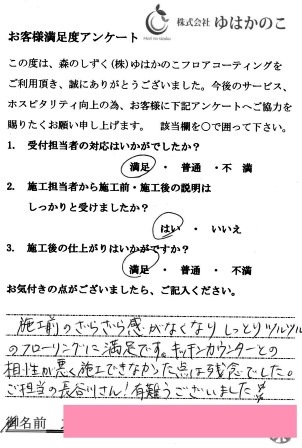 株式会社 ゆはかのこ
お客様満足度アンケート
この度は、森のしずく(株)ゆはかのこフロアコーティングを
ご利用頂き、誠にありがとうございました。今後のサービス、
ホスピタリティ向上の為、お客様に下記アンケートへご協力を
賜りたくお願い申し上げます。 該当欄を〇で囲って下さい。
1. 受付担当者の対応はいかがでしたか?
満足 ・ 普通 ・ 不満
2. 施工担当者から施工前・施工後の説明は
しっかりと受けましたか?
はい ・ いいえ
3. 施工後の仕上がりはいかがですか?
満足 ・ 普通 ・ 不満
お気付きの点がございましたら、ご記入ください。
施工前のさらさら感がなくなり しっとりツルツル
のフローリングに満足です。キッチンカウンターとの
相性が悪く施工できなかった点は残念でした。
ご担当の長谷川さん!有難うございました
御名前